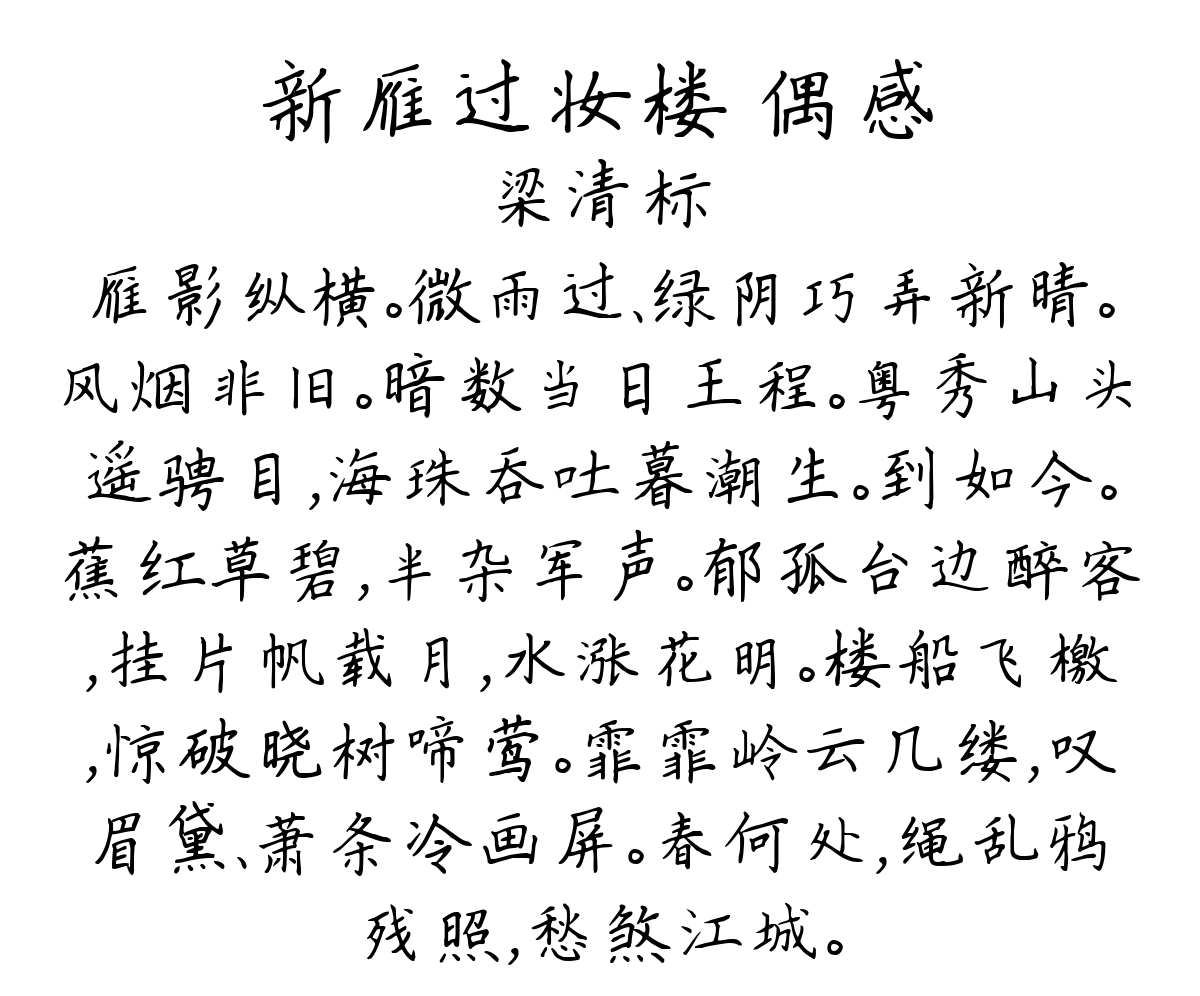 新雁过妆楼 偶感
梁清标
雁影纵横。微雨过、绿阴巧弄新晴。
风烟非旧。暗数当日王程。粤秀山头
遥骋目,海珠吞吐暮潮生。到如今。
蕉红草碧,半杂军声。郁孤台边醉客
,挂片帆载月,水涨花明。楼船飞檄
,惊破晓树啼莺。霏霏岭云几缕,叹
眉黛、萧条冷画屏。春何处,绳乱鸦
残照,愁煞江城。